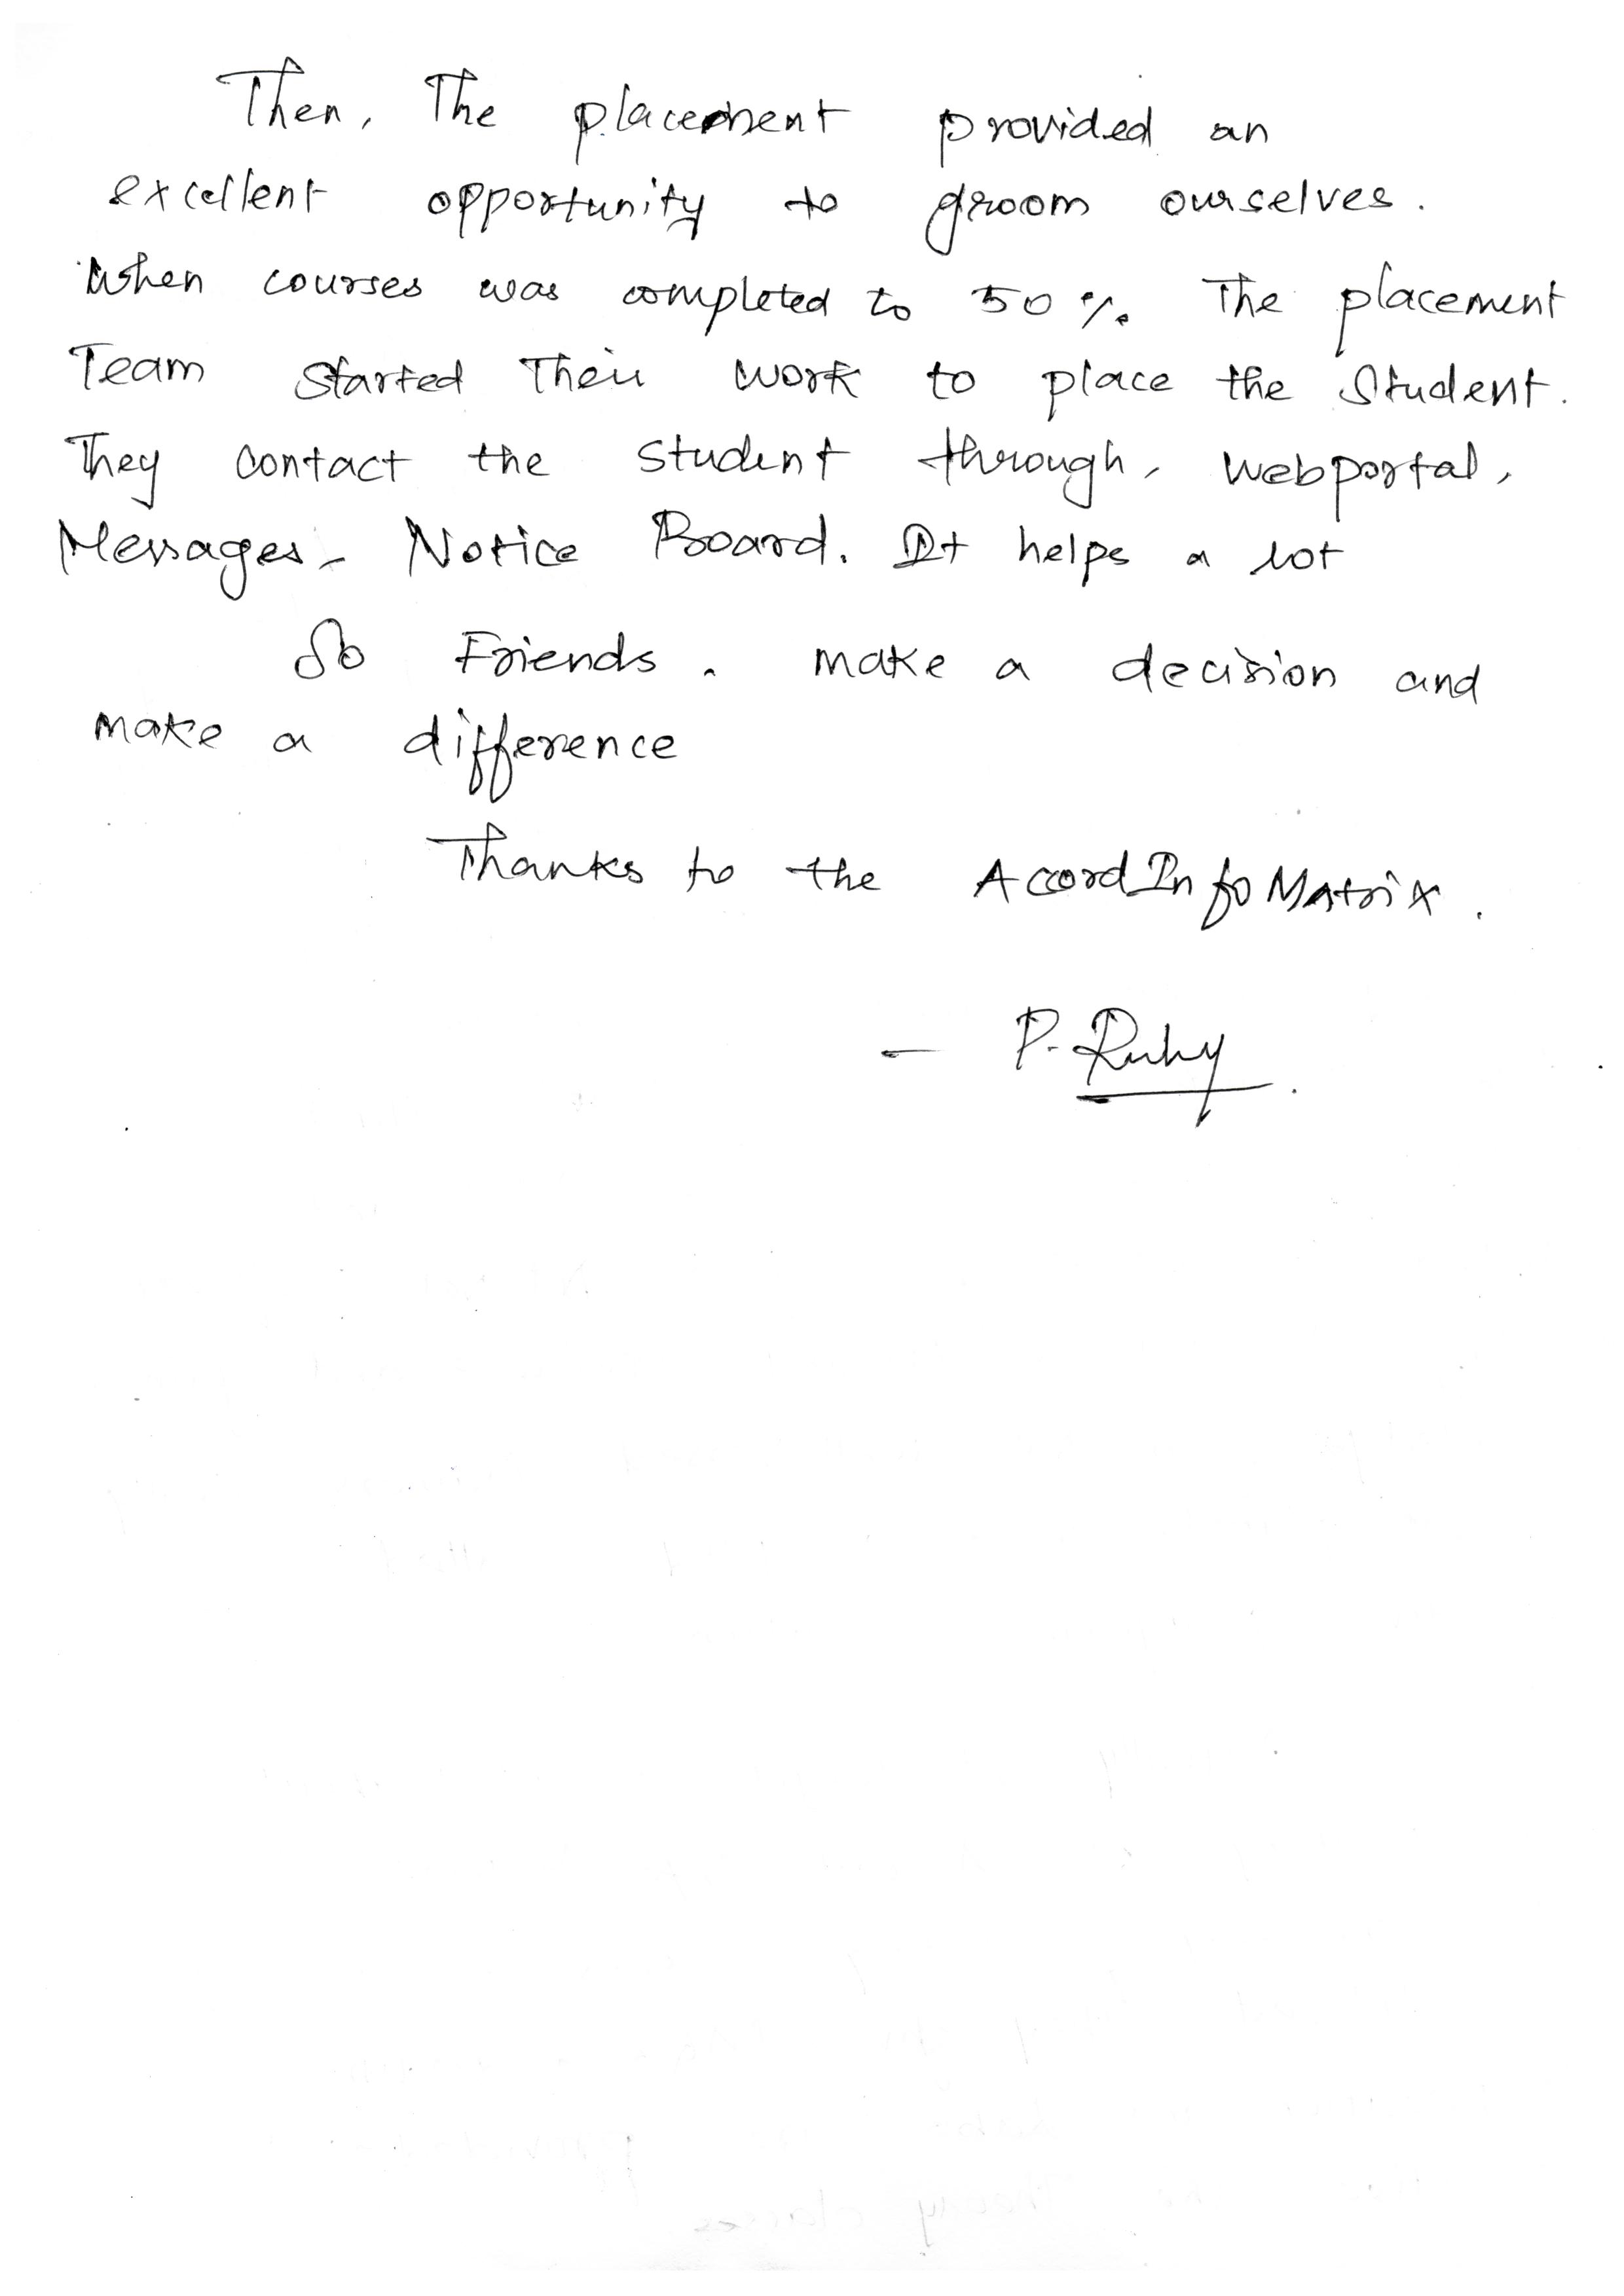 Then, The placement provided an
excellent opportunity to groom ourselves.
When courses was completed to 50%. The placement
Team started Their work to place the Student.
They contact the student through, webportal,
Messages, Notice Board. It helps a lot
So Friends. make a decision and
make a difference
Thanks to the AccordInfoMatrix.
- P. Ruby.